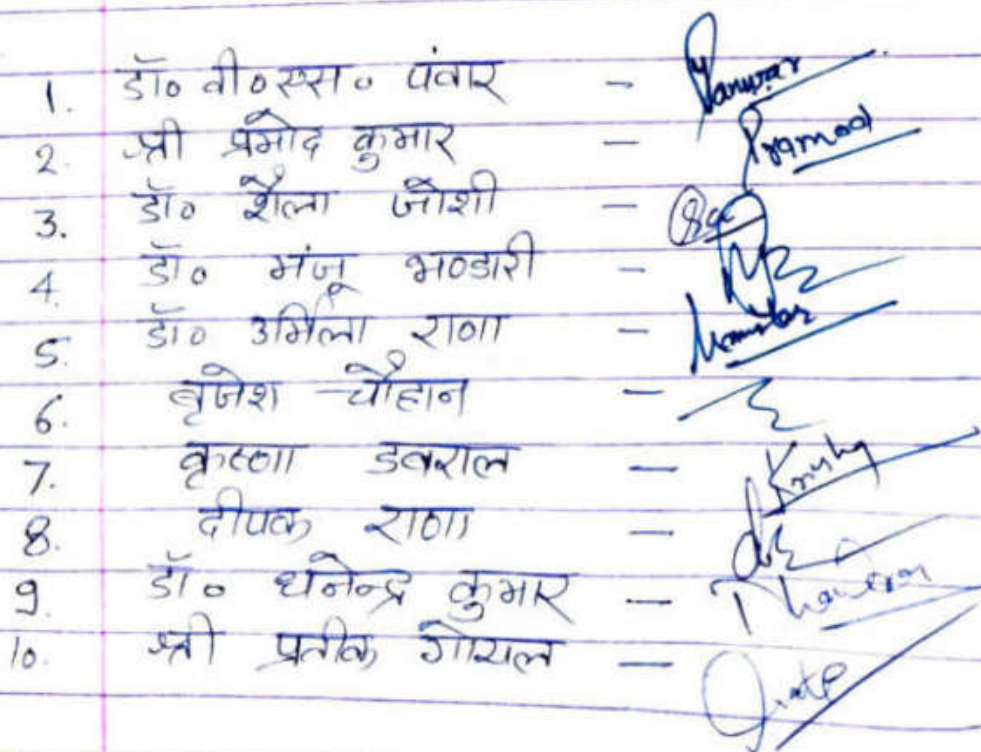 1. डॉ० वी०एस० पंवार - Panwar
2. श्री प्रमोद कुमार - Pramod
3. डॉ० शैला जोशी -
4. डॉ० मंजू भण्डारी -
5. डॉ० उर्मिला राणा -
6. बृजेश चौहान -
7. कृष्णा डबराल -
8. दीपक राणा -
9. डॉ० धनेन्द्र कुमार -
10. श्री प्रतीक गोयल -